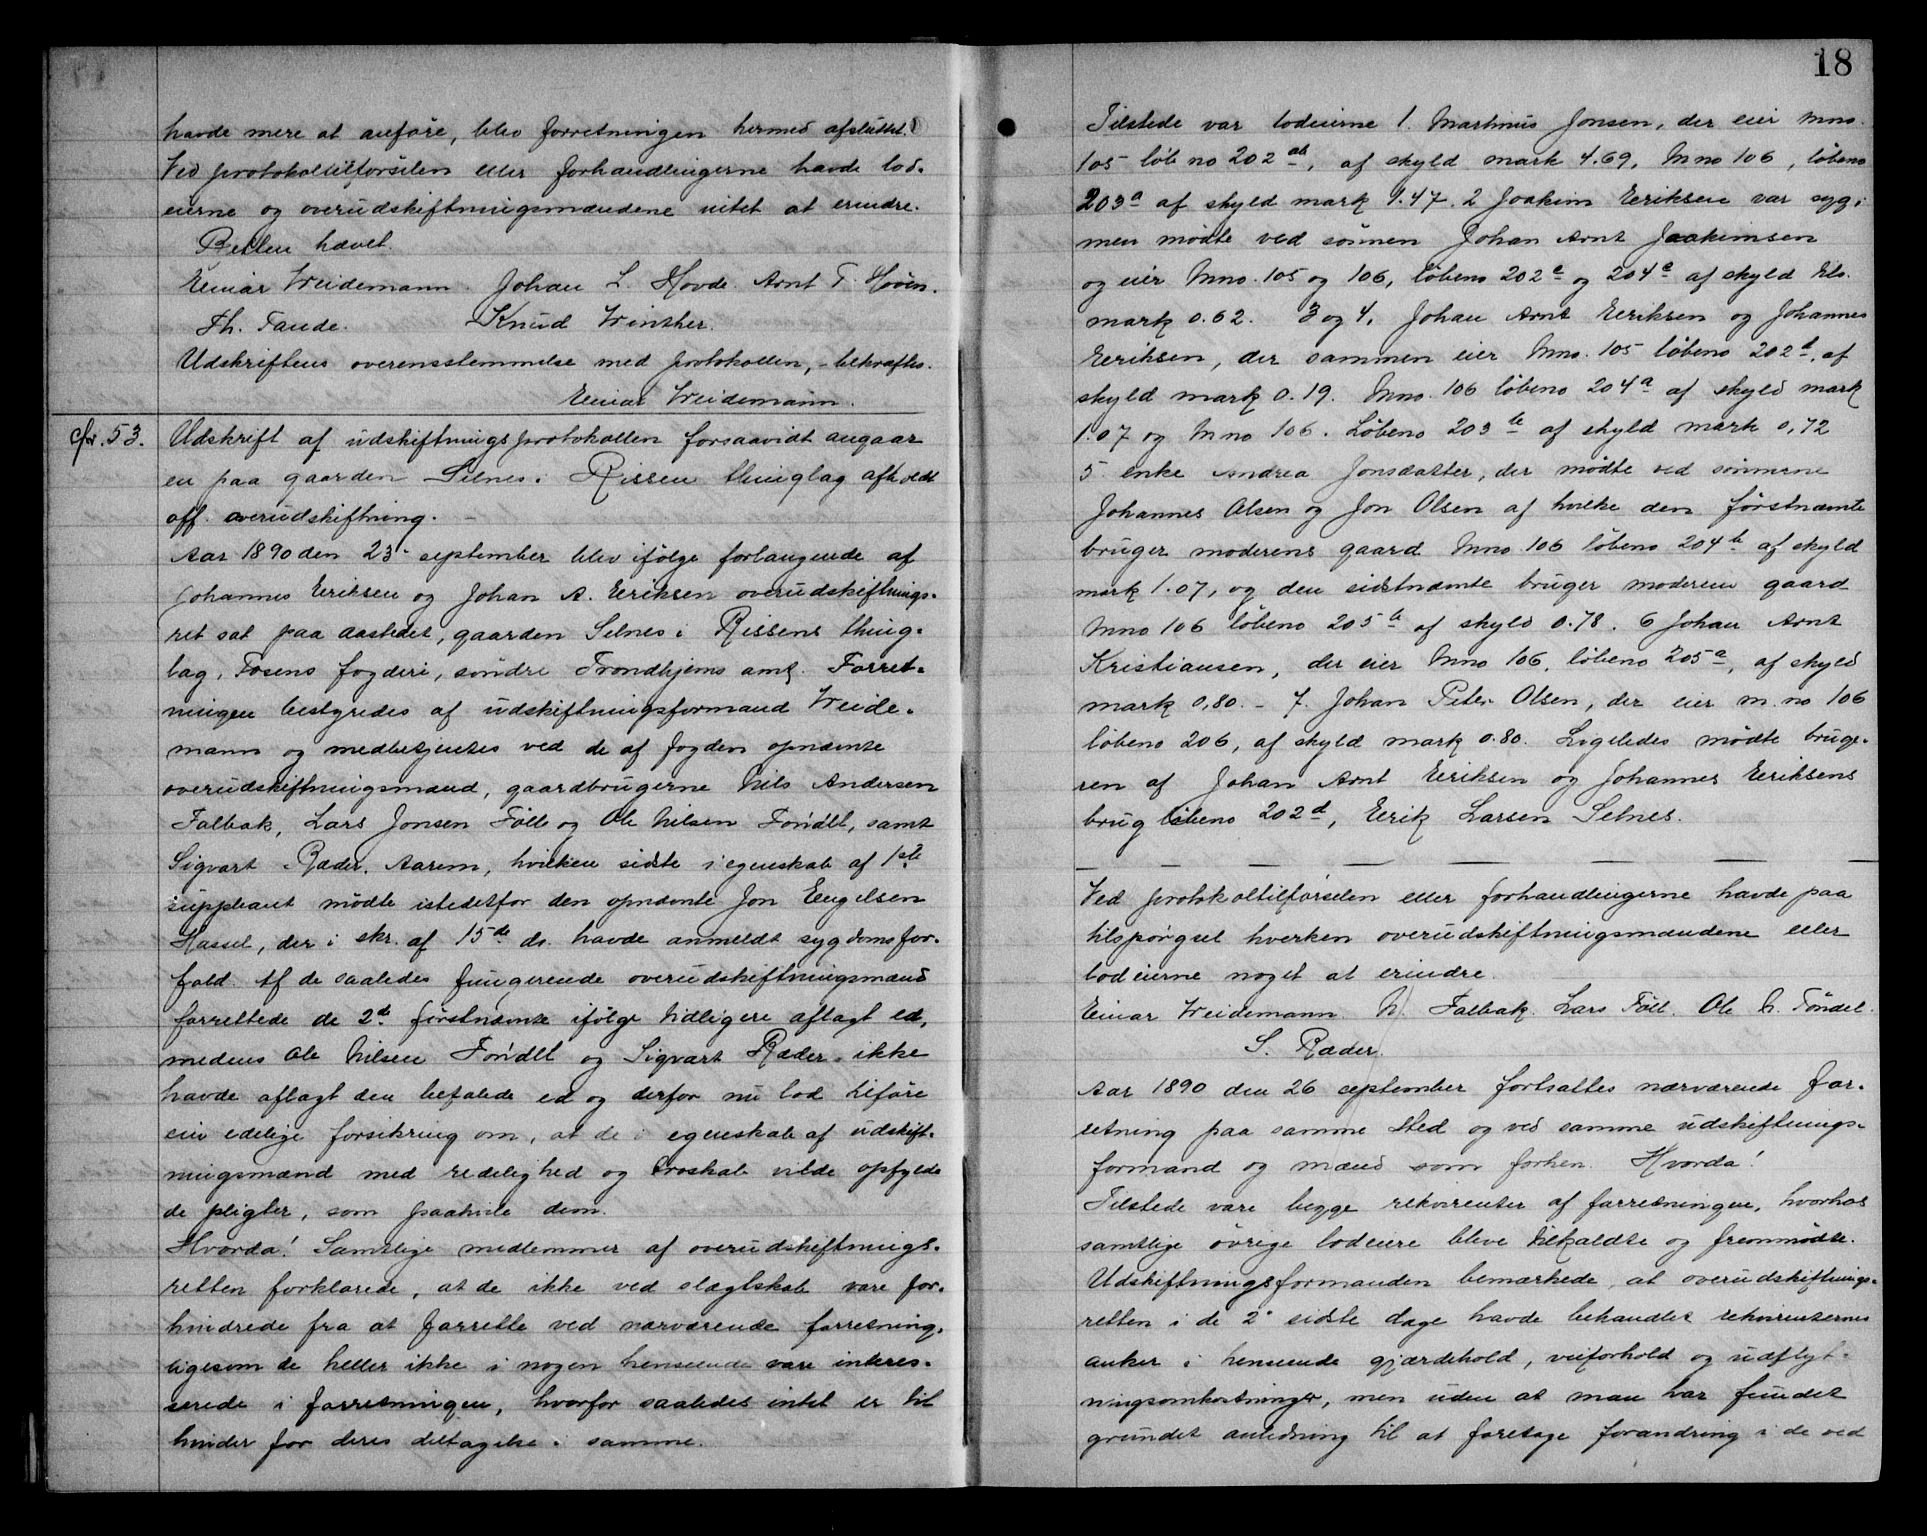 havde mere at anføre, blev forretningen hermed afsluttet.
Ved protokoltilførselen eller forhandlingerne havde lod-
eierne og overudskiftningsmændene intet at erindre.
Retten hævet.
Einar Weidemann. Johan L. Hovde. Arnt T. Høven.
Th. Taude. Knud Winther.
Udskriftens overensstemmelse med protokollen, - bekræftes.
Einar Weidemann.
cfr. 53. Udskrift af udskiftningsprotokollen forsaavidt angaar
en paa gaarden Selnes i Rissen thinglag afholdt
off. overudskiftning. -
Aar 1890 den 23 september blev ifølge forlangende af
Johannes Eeriksen og Johan A. Eeriksen overudskiftnings-
ret sat paa aastedet, gaarden Selnes i Rissens thing-
lag, Fosens fogderi, søndre Trondhjems amt. Forret-
ningen bestyredes af udskiftningsformand Weide-
mann og medbetjentes ved de af fogden opnævnte
overudskiftningsmænd, gaardbrugerne Nils Andersen
Falbak, Lars Jonsen Føll og Ole Nilsen Tøndel, samt
Sigvart Ræder. Aarem, hvilken sidste i egenskab af 1ste
suppleant mødte istedetfor den opnævnte Jon Engelsen
Hassel, der i skr. af 15de ds. havde anmeldt sygdomsfor-
fald. Af de saaledes fungerende overudskiftningsmænd
forrettede de 2de førstnævnte ifølge tidligere aflagt ed,
medens Ole Nilsen Tøndel og Sigvart Ræder ikke
havde aflagt den befalede ed og derfor nu lod tilføre
sin edelige forsikring om, at de i egenskab af udskift-
ningsmænd med redelighed og troskab vilde opfylde
de pligter, som paahvile dem.
Hvorda! Samtlige medlemmer af overudskiftnings-
retten forklarede, at de ikke ved slægtskab vare for-
hindrede fra at forrette ved nærværende forretning,
ligesom de heller ikke i nogen henseende vare interes-
serede i forretningen, hvorfor saaledes intet er til
hinder for deres deltagelse i samme.
18
Tilstede var lodeierne 1. Martinus Jonsen, der eier Mno.
105 løb no 202 ab, af skyld mark 4.69, Mno 106, løbeno
203a af skyld mark 1.47. 2 Joakim Eeriksen var syg,
men mødte ved sønnen Johan Arnt Joakimsen
og eier Mno. 105 og 106, løbeno 202c og 204c af skyld tils.
mark 0.62. 3 og 4, Johan Arnt Eeriksen og Johannes
Eeriksen, der sammen eier Mno. 105 løbeno 202d, af
skyld mark 0.19. Mno. 106 løbeno 204a af skyld mark
1.07 og Mno 106. Løbeno 203b af skyld mark 0,72
5 enke Andrea Jonsdatter, der mødte ved sønnerne
Johannes Olsen og Jon Olsen af hvilke den førstnævnte
bruger moderens gaard Mno 106 løbeno 204b af skyld
mark 1.07, og den sidstnævnte bruger moderens gaard
Mno 106 løbeno 205b af skyld 0.78. 6 Johan Arnt
Kristiansen, der eier Mno 106, løbeno 205a, af skyld
mark 0,80. - 7. Johan Peter Olsen, der eier m.no 106
løbeno 206, af skyld mark 0.80. Ligeledes mødte bruge-
ren af Johan Arnt Eeriksen og Johannes Eeriksens
brug løbeno 202d, Eerik Larsen Selnes.
Ved protokoltilførselen eller forhandlingerne havde paa
tilspørgsel hverken overudskiftningsmændene eller
lodeierne noget at erindre.
Einar Weidemann N Falbak. Lars Føll. Ole N. Tøndel.
S. Ræder.
Aar 1890 den 26 september fortsattes nærværende for-
retning paa samme Sted og ved samme udskiftnings-
formand og mænd som forhen. Hvorda!
Tilstede vare begge rekvirenter af forretningen, hvorhos
samtlige øvrige lodeiere bleve tilkaldte og fremmødte.
Udskiftningsformanden bemærkede, at overudskiftnings-
retten i de 2 sidste dage havde behandlet rekvirenternes
anker i henseende gjærdehold, veiforhold og udflyt-
ningsomkostninger, men uden at man har fundet
grundet anledning til at foretage forandring i de ved